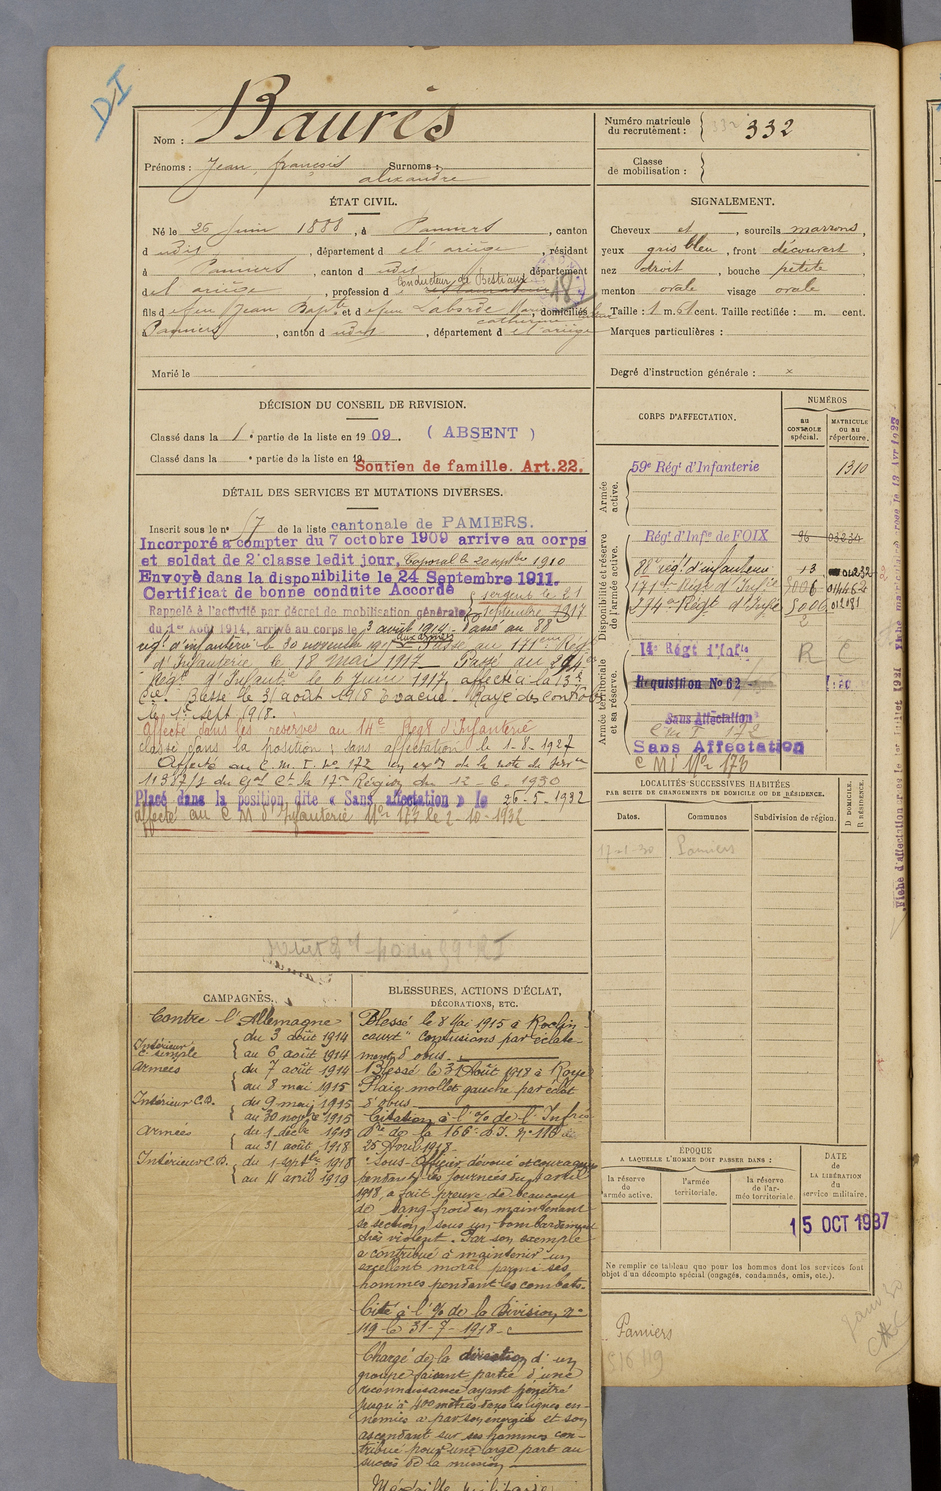 DI
Nom : Baurès
Prénoms : Jean, françois Surnoms :
alexandre
Numéro matricule
du recrutement : 332 332
Classe
de mobilisation :
ÉTAT CIVIL.
Né le 26 Juin 1888, à Pamiers, canton
dudit, département de l'ariège, résidant
à Pamiers, canton dudit, département
de l'ariège, profession de Conducteur de Bestiaux
18
fils de feu Jean Bapte et de feu Laborde, domiciliés
catherine
à Pamiers, canton dudit, département de l'ariège
Marié le
SIGNALEMENT.
Cheveux et, sourcils marrons,
yeux gris bleu, front découvert,
nez droit, bouche petite,
menton ovale visage ovale
Taille : 1 m. 61 cent. Taille rectifiée : m. cent.
Marques particulières :
Degré d'instruction générale : ×
DÉCISION DU CONSEIL DE REVISION.
Classé dans la 1e partie de la liste en 1909. ( ABSENT )
Classé dans la e partie de la liste en 19
Soutien de famille. Art.22.
DÉTAIL DES SERVICES ET MUTATIONS DIVERSES.
Inscrit sous le n° 17 de la liste cantonale de PAMIERS.
Incorporé à compter du 7 octobre 1909 arrive au corps
et soldat de 2e classe ledit jour, Caporal le 20 septbre 1910
Envoyé dans la disponibilite le 24 Septembre 1911.
Certificat de bonne conduite Accordé
sergent le 21
septembre 1917
Rappelé à l'activité par décret de mobilisation générale
du 1er Août 1914, arrivé au corps le 3 août 1914. Passé au 88e
aux armées
régt d'infanterie le 30 novembre 1915 Passé au 171eme Régt
d'Infanterie, le 18 mai 1917 Passé au 294e
Régt d'Infantie le 6 Juin 1917, affecté à la 13e
Cie. Blessé le 31 août 1918 Evacué. Rayé des contrôles
le 1er sept 1918.
Affecté dans les réserves au 14e Régt d'Infanterie
classé dans la position : sans affectation le 1-8-1927
Affecté au C. M. I. No 172 en exon de la note de serv
11387/1 du Gal Ct la 17e Région du 12-6-1930
Placé dans la position dite « Sans affectation » le 26-5-1932
affecté au C M d'Infanterie No 173 le 2-10-1932
CORPS D'AFFECTATION.
NUMÉROS
AU CONTROLE spécial.
MATRICULE OU AU répertoire.
Armée active.
59e Régt d'Infanterie 1310
Disponibilité et réserve de l'armée active.
Régt d'Infie de FOIX 96 03234
88e régt d'infanterie 13 01232
171e Régt d'Infie
294e Régt d'Infie
Armée territoriale et sa réserve.
14e Régt d'Infie R C
Requisition No 62
Sans Affectation
C M I 172
Sans Affectation
C M I No 173
LOCALITÉS SUCCESSIVES HABITÉES
PAR SUITE DE CHANGEMENTS DE DOMICILE OU DE RÉSIDENCE.
Dates. Communes Subdivision de région. D DOMICILE. R RÉSIDENCE.
17-1-30 Pamiers
CAMPAGNES.
Contre l'Allemagne
Intérieur
C. simple
du 3 août 1914
au 6 août 1914
Armées
du 7 août 1914
au 8 mai 1915
Intérieur C.D.
du 9 mai 1915
au 30 nopbre 1915
Armées
du 1 decbre 1915
au 31 août 1918
Intérieur C.D.
du 1 septbre 1918
au 4 avril 1919
BLESSURES, ACTIONS D'ÉCLAT,
DÉCORATIONS, ETC.
Blessé le 8 Mai 1915 à Roclin-
court "Contusions par éclate-
ment d'obus.
Blessé le 31 Août 1918 à Roye
Plaie mollet gauche par éclat
d'obus
Citation à l'O/ de l'Infie
Dre de la 166e D.I. No 118 du
25 Avril 1918
"Sous-Officier, dévoué et courageux
pendant les journées du avril
1918, a fait preuve de beaucoup
de sang-froid en maintenant
sa section, sous un bombardement
très violent. Par son exemple
a contribué à maintenir un
excellent moral parmi ses
hommes pendant les combats.
Cité à l'O/ de la Division No
119 le 31-7-1918
Chargé de la direction d'un
groupe faisant partie d'une
reconnaissance ayant pénétré
jusqu'à 400 mètres dans les lignes en-
nemies a par son énergie et son
ascendant sur ses hommes con-
tribué pour une large part au
succès de la mission
Médaille militaire
ÉPOQUE
A LAQUELLE L'HOMME DOIT PASSER DANS :
la réserve de l'armée active.
l'armée territoriale.
la réserve de l'armée territoriale.
DATE
DE LA LIBÉRATION du service militaire.
15 OCT 1937
Ne remplir ce tableau que pour les hommes dont les services font
objet d'un décompte spécial (engagés, condamnés, omis, etc.).
Pamiers